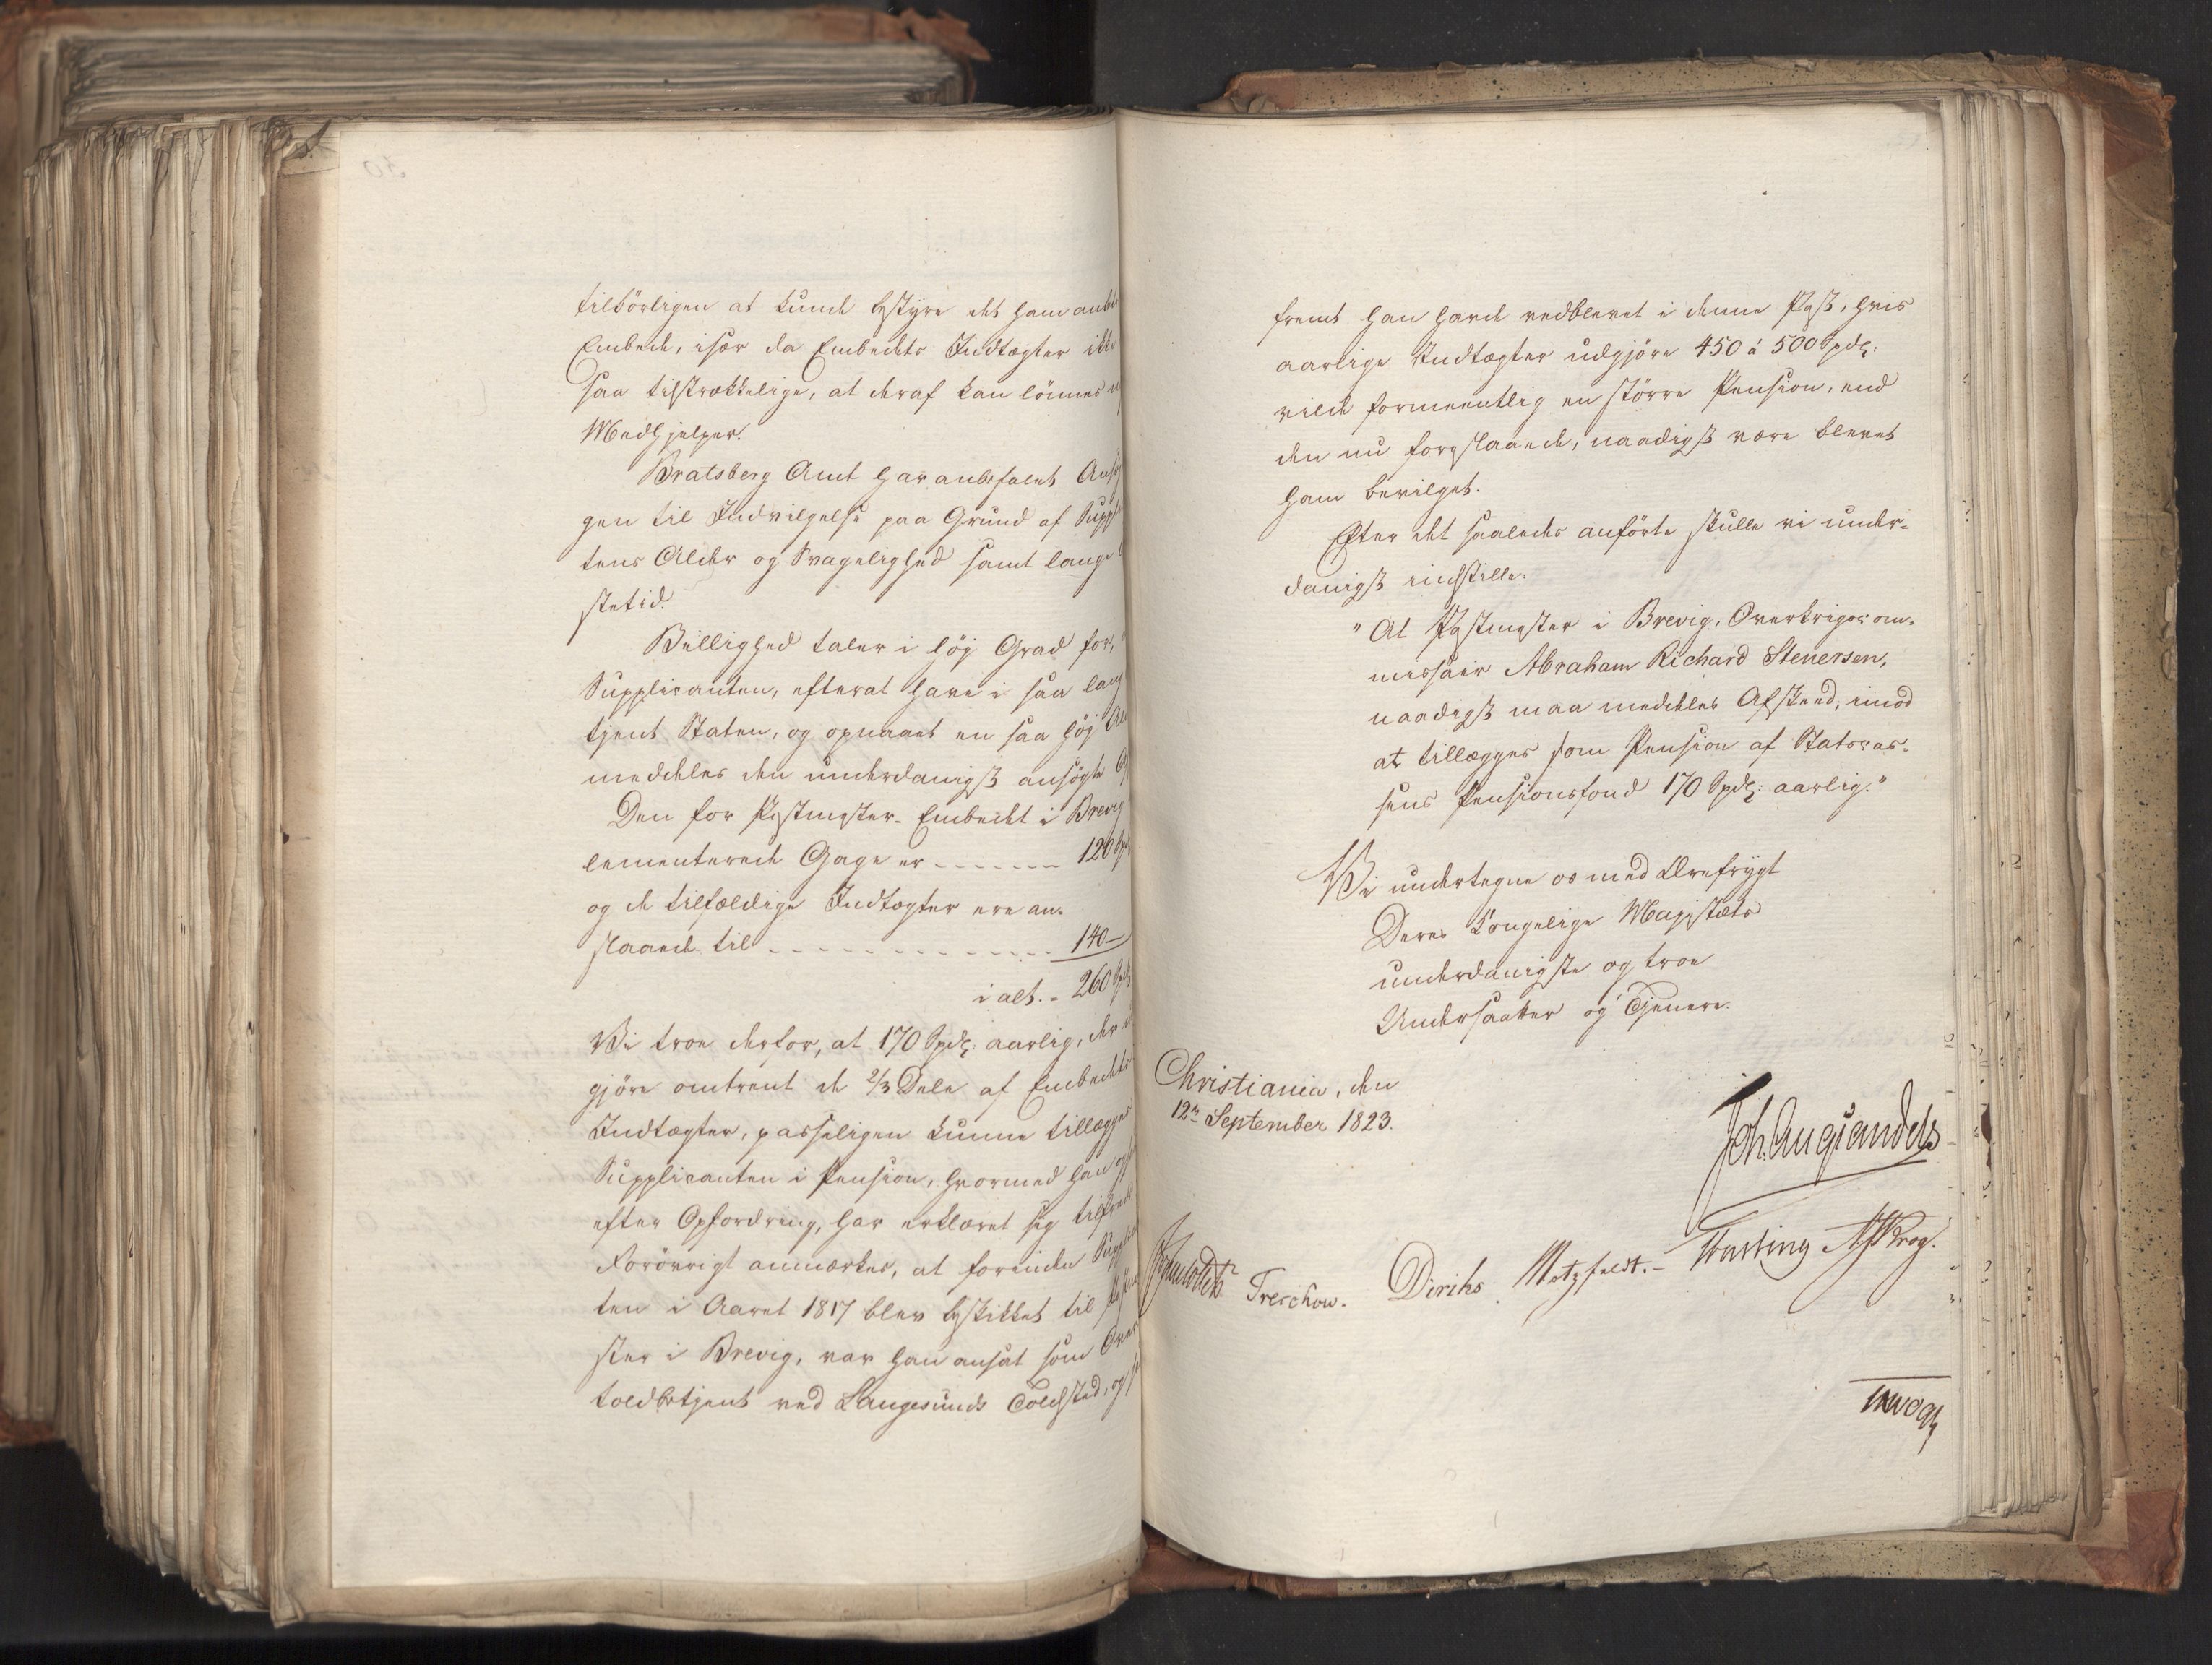 tilbörligen at kunde bestyre det ham
Embede, især da Embedets Indtægter
saa tilstrækkelige, at deraf kan lönnes
Medhjelper.
Bratsberg Amt har anbefalet
gen til Indvilgelse paa Grund af
tens Alder og Svagelighed samt lange
stetid.
Billighed taler i höj Grad for,
Supplicanten, efterat have i saa
tjent Staten, og opnaaet en saa höj
meddeles den underdanigst ansögte
Den for Postmester-Embedet i Brevig
lementerede Gage er - - - - - - - 120
og de tilfældige Indtægter ere an-
slaaede til - - - - - - - - - - - - - - 140 -
i alt. - 260
Vi troe derfor, at 170 Spdlr: aarlig, der
gjöre omtrent de 2/3 Dele af Embedets
Indtægter, passeligen kunne tillægges
Supplicanten i Pension, hvormed han
efter Opfordring, har erklæret sig
Forövrigt anmærkes, at forinden
ten i Aaret 1817 blev beskikket til
ster i Brevig, var han ansat som
toldbetjent ved Langesunds Toldsted,
fremt han havde vedblevet i denne Post, hvis
aarlige Indtægter udgjöre 450 á 500 Spdlr:
vilde formeentlig en större Pension, end
den nu foreslaaede, naadigst være blevet
ham bevilget.
Efter det saaledes anförte skulle vi under-
danigst indstille:
"At Postmester i Brevig, Overkrigscom-
missair Abraham Richard Stenersen,
naadigst maa meddeles Afskeed, imod
at tillægges som Pension af Statscas-
sens Pensionsfond 170 Spdlr: aarlig."
Vi undertegne os med Ærefrygt
Deres Kongelige Majestæts
underdanigste og troe
Undersaatter og Tjenere.
Christiania, den
12te September 1823.
Joh. Aug. Sandels
Treschow. Diriks Motzfeldt. - Fasting Krog.